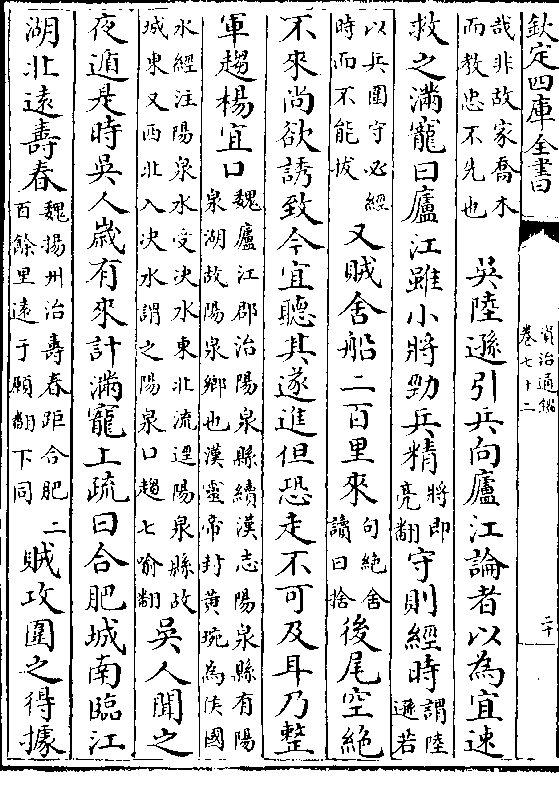 欽定四庫全書
資治通鑑
卷七十二
二十
哉非故家喬木
而教忠不先也
吳陸遜引兵向廬江論者以為宜速
救之滿寵曰廬江雖小將勁兵精
將即
亮翻
守則經時
謂陸
遜若
以兵圍守必經
時而不能拔
又賊舍船二百里來
句絶舍
讀曰捨
後尾空絶
不來尚欲誘致今宜聽其遂進但恐走不可及耳乃整
軍趨楊宜口
魏廬江郡治陽泉縣續漢志陽泉縣有陽
泉湖故陽泉鄉也漢靈帝封黄琬為侯國
水經注陽泉水受決水東北流逕陽泉縣故
城東又西北入決水謂之陽泉口趨七喻翻
吳人聞之
夜遁是時吳人歲有來計滿寵上疏曰合肥城南臨江
湖北逺壽春
魏揚州治壽春距合肥二
百餘里逺于願翻下同
賊攻圍之得據